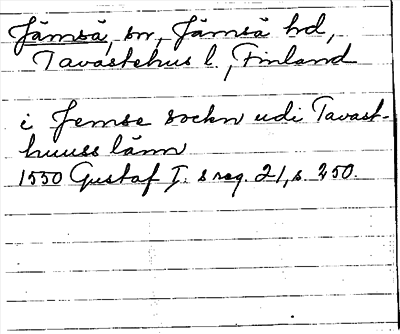 Jämsä, sn, Jämsä hd,
Tavastehus l., Finland
i Jemse sockn udi Tavast-
huuss länn
1550 Gustaf I:s reg. 21, s. 250.